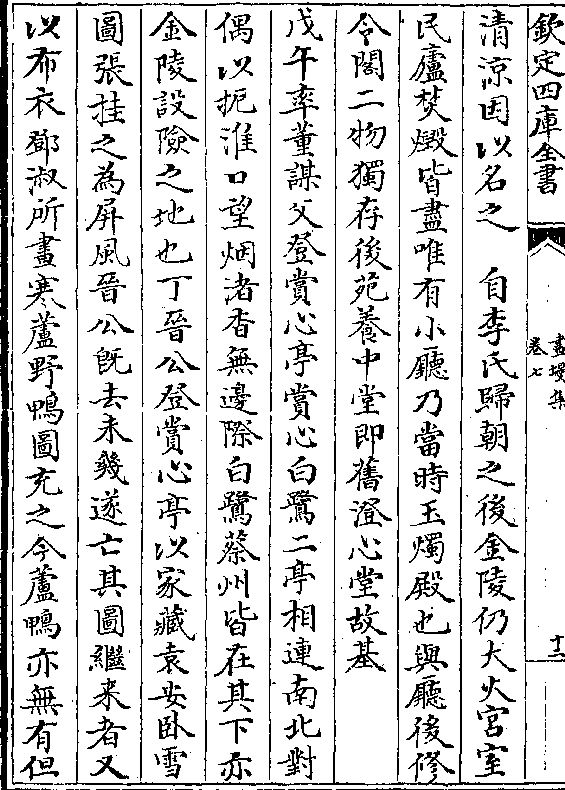 欽定四庫全書
畫墁集
卷七
十二
清涼因以名之　自李氏歸朝之後金陵仍大火宮室
民廬焚燬皆盡唯有小廳乃當時玉燭殿也與廳後修
令閣二物獨存後苑養中堂即舊澄心堂故基
戊午率董謀父登賞心亭賞心白鷺二亭相連南北對
偶以扼淮口望烟渚杳無邊際白鷺蔡州皆在其下亦
金陵設險之地也丁晉公登賞心亭以家藏袁安卧雪
圖張挂之為屏風晉公既去未幾遂亡其圖繼来者又
以布衣鄧淑所畫寒蘆野鴨圖充之今蘆鴨亦無有但